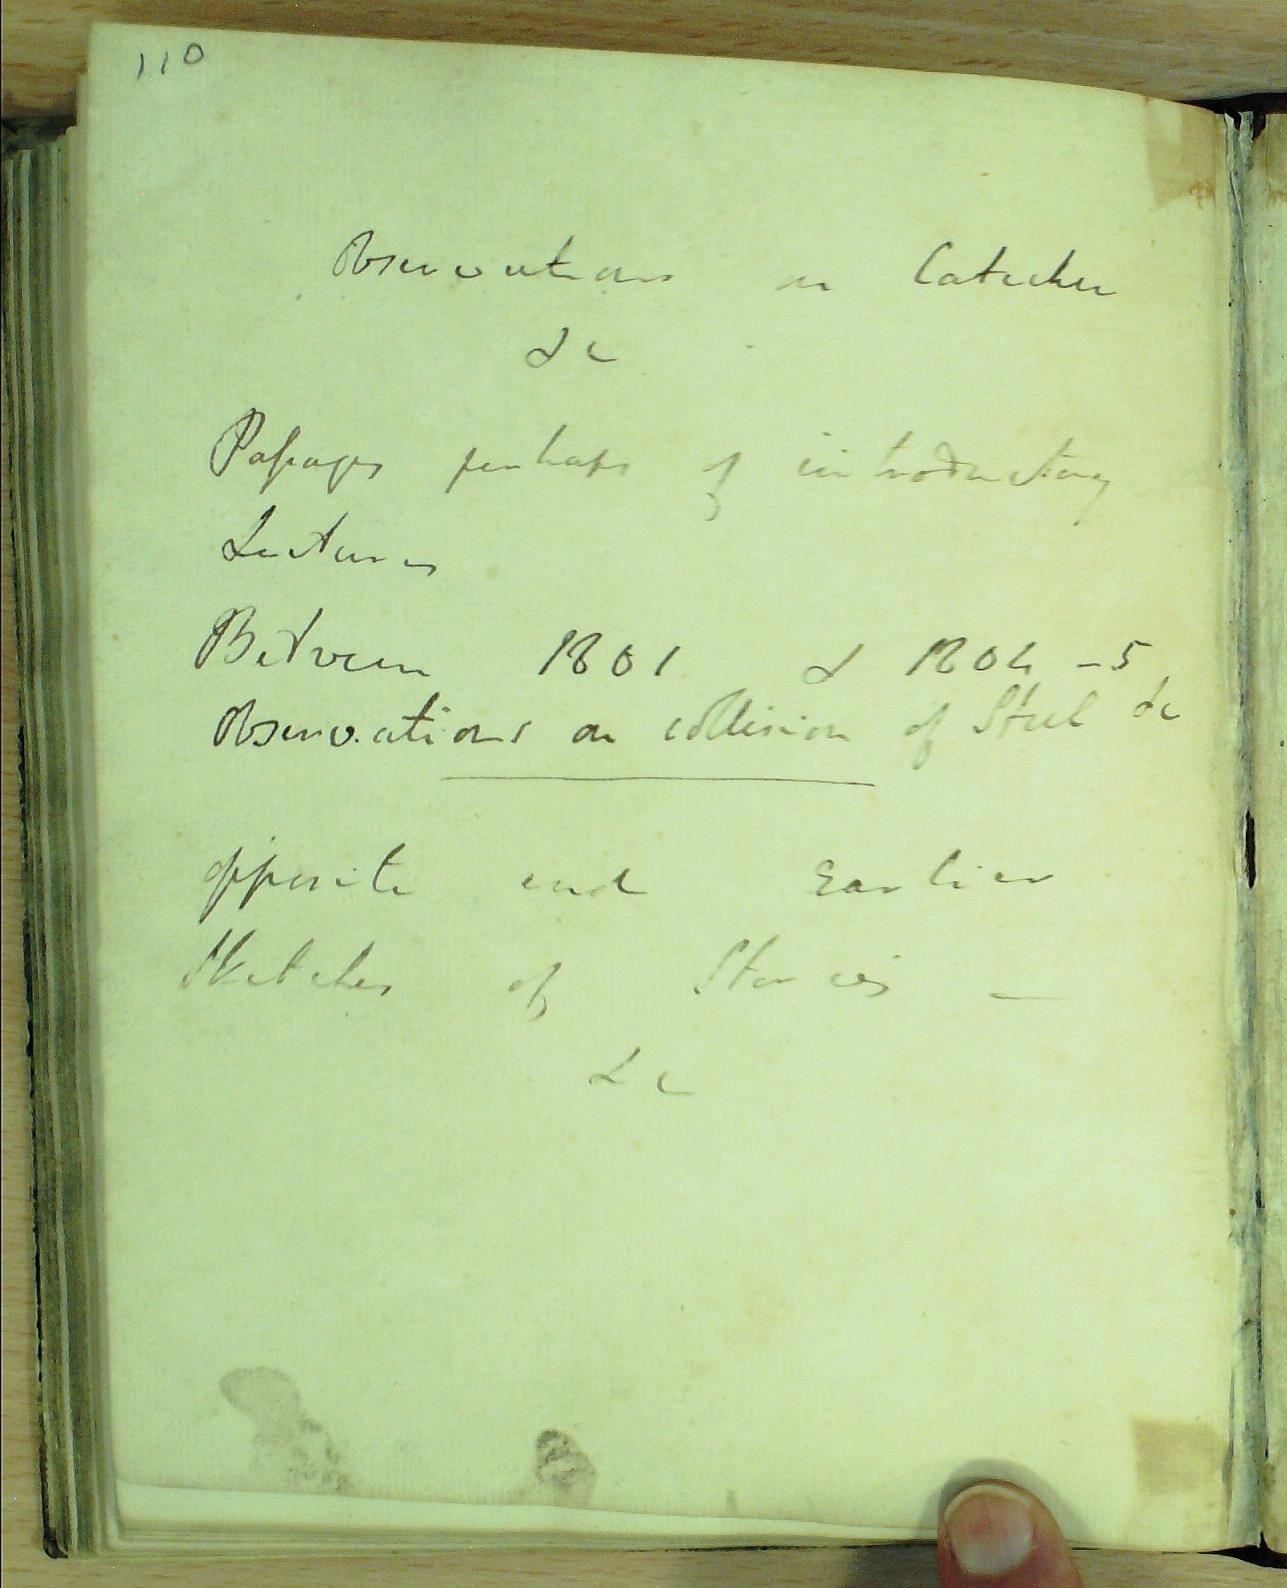 110
Observations on Catechu
&c
Passages perhaps of introductory
Lectures
Between 1801 & 1804 -5
Observations on collision of Steel &c
opposite end Earlier
Sketches of Stories —
&c